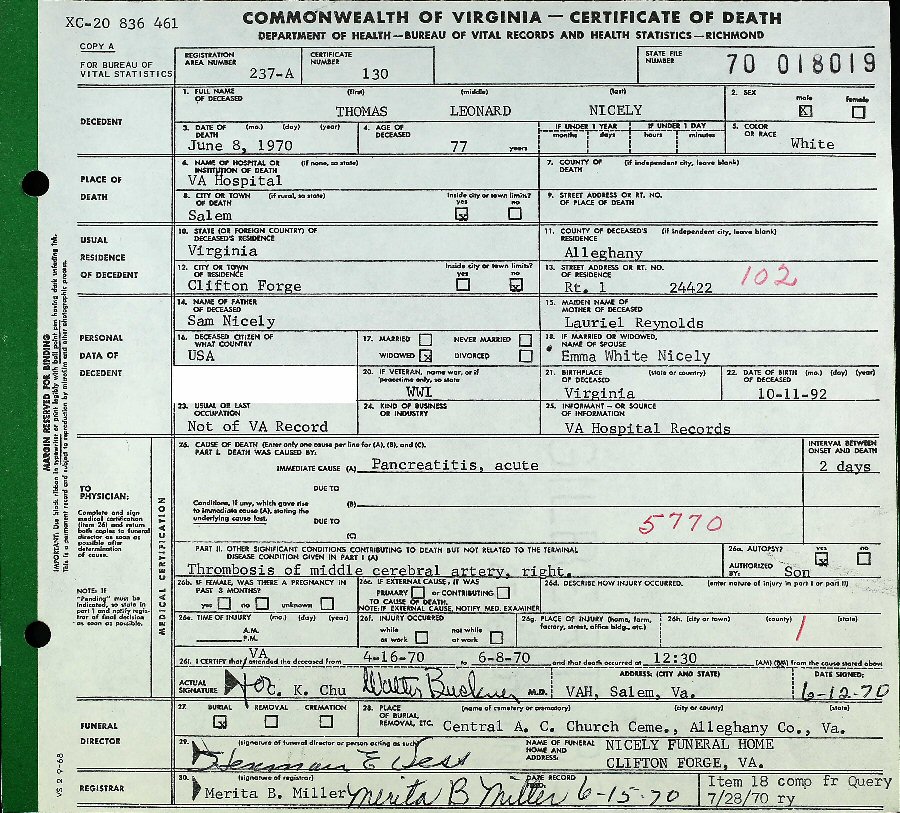 XC-20 836 461
COMMONWEALTH OF VIRGINIA — CERTIFICATE OF DEATH
DEPARTMENT OF HEALTH—BUREAU OF VITAL RECORDS AND HEALTH STATISTICS—RICHMOND
COPY A
FOR BUREAU OF VITAL STATISTICS
REGISTRATION AREA NUMBER 237-A
CERTIFICATE NUMBER 130
STATE FILE NUMBER 70 018019
DECEDENT
1. FULL NAME OF DECEASED (first) (middle) (last)
THOMAS LEONARD NICELY
2. SEX male x female
3. DATE OF DEATH (mo.) (day) (year)
June 8, 1970
4. AGE OF DECEASED
77 years
IF UNDER 1 YEAR months days
IF UNDER 1 DAY hours minutes
5. COLOR OR RACE
White
PLACE OF DEATH
6. NAME OF HOSPITAL OR INSTITUTION OF DEATH (if none, so state)
VA Hospital
7. COUNTY OF DEATH (if independent city, leave blank)
8. CITY OR TOWN OF DEATH (if rural, so state)
Salem
Inside city or town limits? yes x no
9. STREET ADDRESS OR RT. NO. OF PLACE OF DEATH
USUAL RESIDENCE OF DECEDENT
10. STATE (OR FOREIGN COUNTRY) OF DECEASED'S RESIDENCE
Virginia
11. COUNTY OF DECEASED'S RESIDENCE (if independent city, leave blank)
Alleghany
12. CITY OR TOWN OF RESIDENCE
Clifton Forge
Inside city or town limits? yes no x
13. STREET ADDRESS OR RT. NO. OF RESIDENCE
Rt. 1 24422
102
PERSONAL DATA OF DECEDENT
14. NAME OF FATHER OF DECEASED
Sam Nicely
15. MAIDEN NAME OF MOTHER OF DECEASED
Lauriel Reynolds
16. DECEASED CITIZEN OF WHAT COUNTRY
USA
17. MARRIED NEVER MARRIED
WIDOWED x DIVORCED
18. IF MARRIED OR WIDOWED, NAME OF SPOUSE
Emma White Nicely
20. IF VETERAN, name war, or if peacetime only, so state
WWI
21. BIRTHPLACE OF DECEASED (state or country)
Virginia
22. DATE OF BIRTH OF DECEASED (mo.) (day) (year)
10-11-92
23. USUAL OR LAST OCCUPATION
Not of VA Record
24. KIND OF BUSINESS OR INDUSTRY
25. INFORMANT — OR SOURCE OF INFORMATION
VA Hospital Records
MARGIN RESERVED FOR BINDING
IMPORTANT: Use black ribbon in typewriter or print legibly with ball point pen having dark unfading ink.
This is a permanent record and subject to reproduction by microfilm and other photographic process.
TO PHYSICIAN:
Complete and sign medical certification (item 26) and return both copies to funeral director as soon as possible after determination of cause.
NOTE: IF "Pending" must be indicated, so state in part I and notify registrar of final decision as soon as possible.
MEDICAL CERTIFICATION
26. CAUSE OF DEATH (Enter only one cause per line for (A), (B), and (C).
PART I. DEATH WAS CAUSED BY:
INTERVAL BETWEEN ONSET AND DEATH
IMMEDIATE CAUSE (A) Pancreatitis, acute
2 days
DUE TO
Conditions, if any, which gave rise to immediate cause (A), stating the underlying cause last.
(B)
DUE TO
(C)
5770
PART II. OTHER SIGNIFICANT CONDITIONS CONTRIBUTING TO DEATH BUT NOT RELATED TO THE TERMINAL DISEASE CONDITION GIVEN IN PART I (A)
Thrombosis of middle cerebral artery, right.
26a. AUTOPSY? yes x no
AUTHORIZED BY: Son
26b. IF FEMALE, WAS THERE A PREGNANCY IN PAST 3 MONTHS?
yes no unknown
26c. IF EXTERNAL CAUSE, IT WAS
PRIMARY or CONTRIBUTING
TO CAUSE OF DEATH.
NOTE: IF EXTERNAL CAUSE, NOTIFY MED. EXAMINER
26d. DESCRIBE HOW INJURY OCCURRED. (enter nature of injury in part I or part II)
26e. TIME OF INJURY (mo.) (day) (year)
A.M.
P.M.
26f. INJURY OCCURRED
while at work not while at work
26g. PLACE OF INJURY (home, farm, factory, street, office bldg., etc.)
26h. (city or town) (county) (state)
VA
26i. I CERTIFY that I attended the deceased from 4-16-70 to 6-8-70 and that death occurred at 12:30 (AM) (PM) from the cause stated above
ACTUAL SIGNATURE for C. K. Chu Walter Buckner M.D.
ADDRESS: (CITY AND STATE)
VAH, Salem, Va.
DATE SIGNED:
6-12-70
FUNERAL DIRECTOR
27. BURIAL x REMOVAL CREMATION
28. PLACE OF BURIAL, REMOVAL, ETC. (name of cemetery or crematory) (city or county) (state)
Central A. C. Church Ceme., Alleghany Co., Va.
29. (signature of funeral director or person acting as such)
Herman E Hess
NAME OF FUNERAL HOME AND ADDRESS:
NICELY FUNERAL HOME
CLIFTON FORGE, VA.
REGISTRAR
30. (signature of registrar)
Merita B. Miller Merita B Miller
DATE RECORD
6-15-70
Item 18 comp fr Query
7/28/70 ry